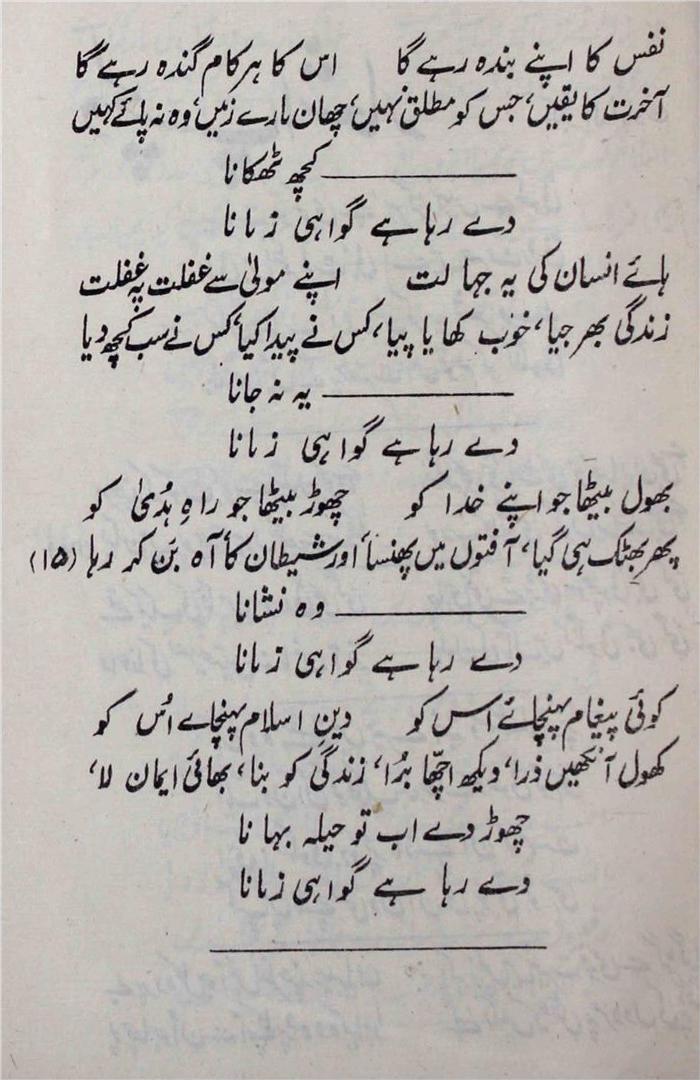 نفس کا اپنے بندہ رہے گا اس کا ہر کام گندہ رہے گا
آخرت کا یقیں، جس کو مطلق نہیں، چھان مارے زمیں، وہ نہ پائے کہیں
کچھ ٹھکانا
دے رہا ہے گواہی زمانا
ہائے انسان کی یہ جہالت اپنے مولیٰ سے غفلت پہ غفلت
زندگی بھر جیا، خوب کھایا پیا، کس نے پیدا کیا، کس نے سب کچھ دیا
یہ نہ جانا
دے رہا ہے گواہی زمانا
بھول بیٹھا جو اپنے خدا کو چھوڑ بیٹھا جو راہِ ہُدیٰ کو
پھر بھٹک ہی گیا، آفتوں میں پھنسا، اور شیطان کا آہ بَن کر رہا (۱۵)
وہ نشانا
دے رہا ہے گواہی زمانا
کوئی پیغام پہنچائے اِس کو دینِ اسلام پہنچاے اُس کو
کھول آنکھیں ذرا، دیکھ اچّھا بُرا، زندگی کو بنا، بھائی ایمان لا،
چھوڑ دے اب تو حیلہ بہانا
دے رہا ہے گواہی زمانا